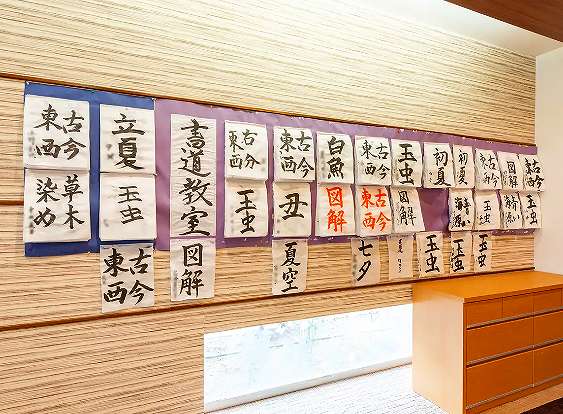 古今
東西
草木
染め
立夏
玉虫
古今
東西
書道教室
図解
古今
東西
玉虫
古今
東西
丑
夏空
白魚
図解
古今
東西
古今
東西
七夕
玉虫
図解
初夏
玉虫
初夏
玉虫
古今
東西
玉虫
玉虫
図解
古今
東西
玉虫